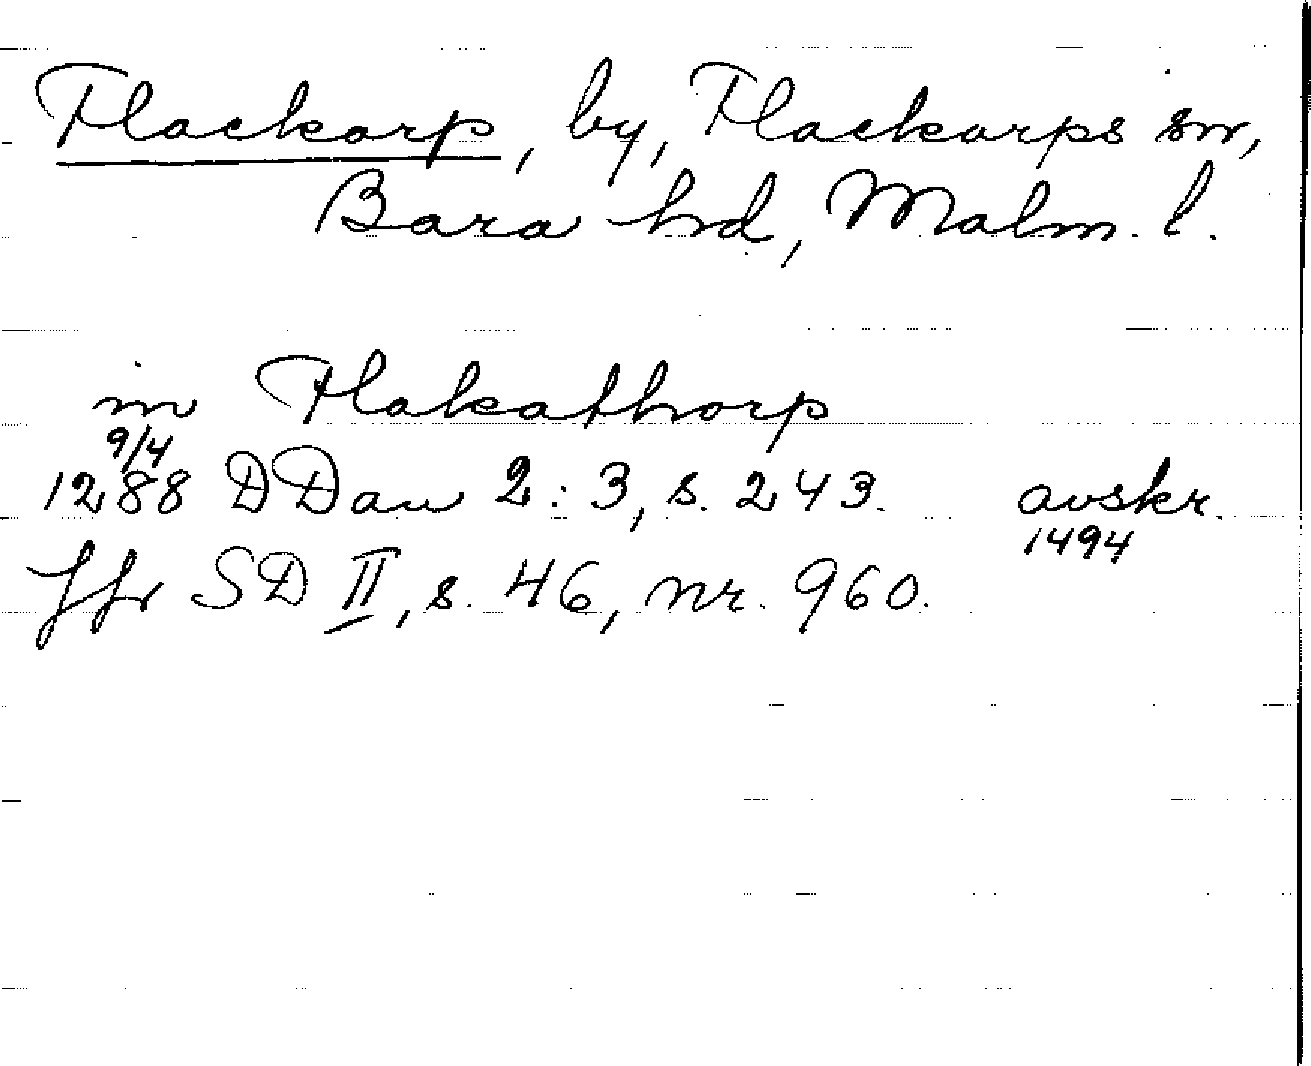 Flackarp, by, Flackarps sn,
Bara hd, Malm. l.
in Flakathorp
9/4
1288 DDan 2:3, s. 243. avskr.
1494
Jfr SD II, s. 46, nr. 960.